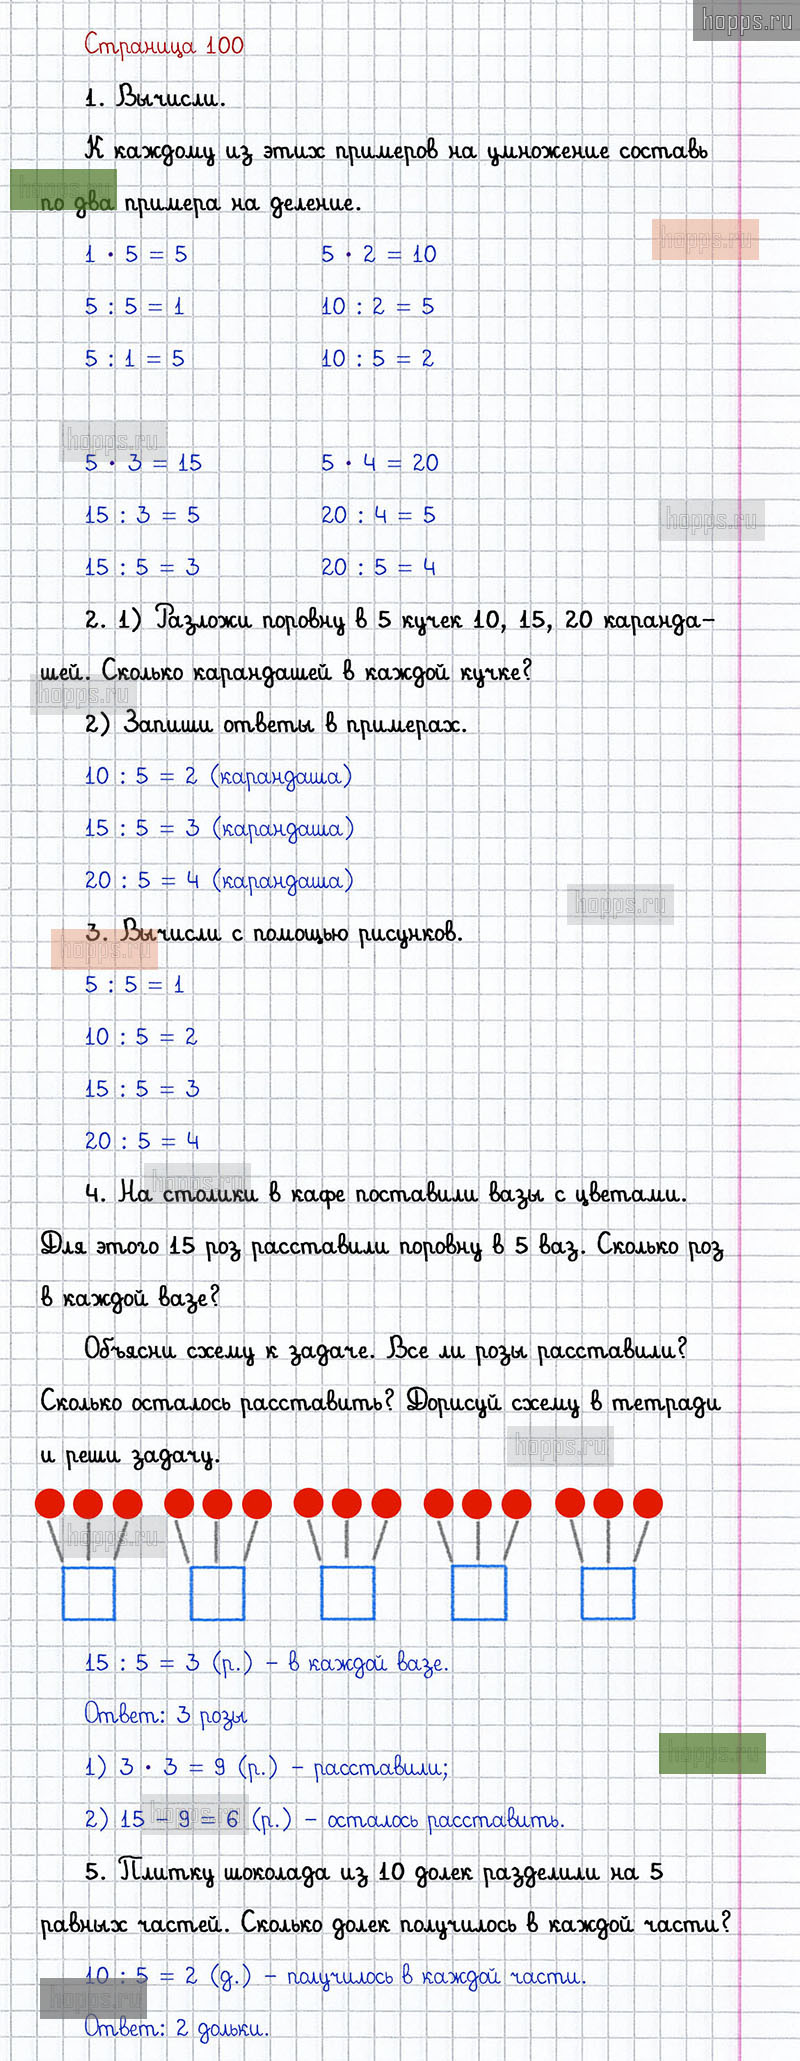 hopps.ru
Страница 100
1. Вычисли.
К каждому из этих примеров на умножение составь
hopps.ru
по два примера на деление.
hopps.ru
1 · 5 = 5 5 · 2 = 10
5 : 5 = 1 10 : 2 = 5
5 : 1 = 5 10 : 5 = 2
hopps.ru
5 · 3 = 15 5 · 4 = 20
15 : 3 = 5 20 : 4 = 5
hopps.ru
15 : 5 = 3 20 : 5 = 4
2. 1) Разложи поровну в 5 кучек 10, 15, 20 каранда-
шей. Сколько карандашей в каждой кучке?
hopps.ru
2) Запиши ответы в примерах.
10 : 5 = 2 (карандаша)
15 : 5 = 3 (карандаша)
20 : 5 = 4 (карандаша)
hopps.ru
3. Вычисли с помощью рисунков.
hopps.ru
5 : 5 = 1
10 : 5 = 2
15 : 5 = 3
20 : 5 = 4
hopps.ru
4. На столики в кафе поставили вазы с цветами.
Для этого 15 роз расставили поровну в 5 ваз. Сколько роз
в каждой вазе?
Объясни схему к задаче. Все ли розы расставили?
Сколько осталось расставить? Дорисуй схему в тетради
hopps.ru
и реши задачу.
hopps.ru
15 : 5 = 3 (р.) – в каждой вазе.
Ответ: 3 розы
hopps.ru
1) 3 · 3 = 9 (р.) – расставили;
hopps.ru
2) 15 – 9 = 6 (р.) – осталось расставить.
5. Плитку шоколада из 10 долек разделили на 5
равных частей. Сколько долек получилось в каждой части?
10 : 5 = 2 (д.) – получилось в каждой части.
hopps.ru
Ответ: 2 дольки.